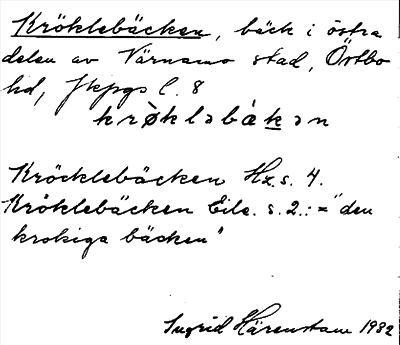 Kröklebäcken, bäck i östra
delen av Värnamo stad, Östbo
hd, Jkpgs l. 8
krøkləbäkən
Kröcklebäcken Hz.s. 4.
Kröklebäcken Eile. s. 2.: = "den
krokiga bäcken"
Ingrid Härenstam 1932